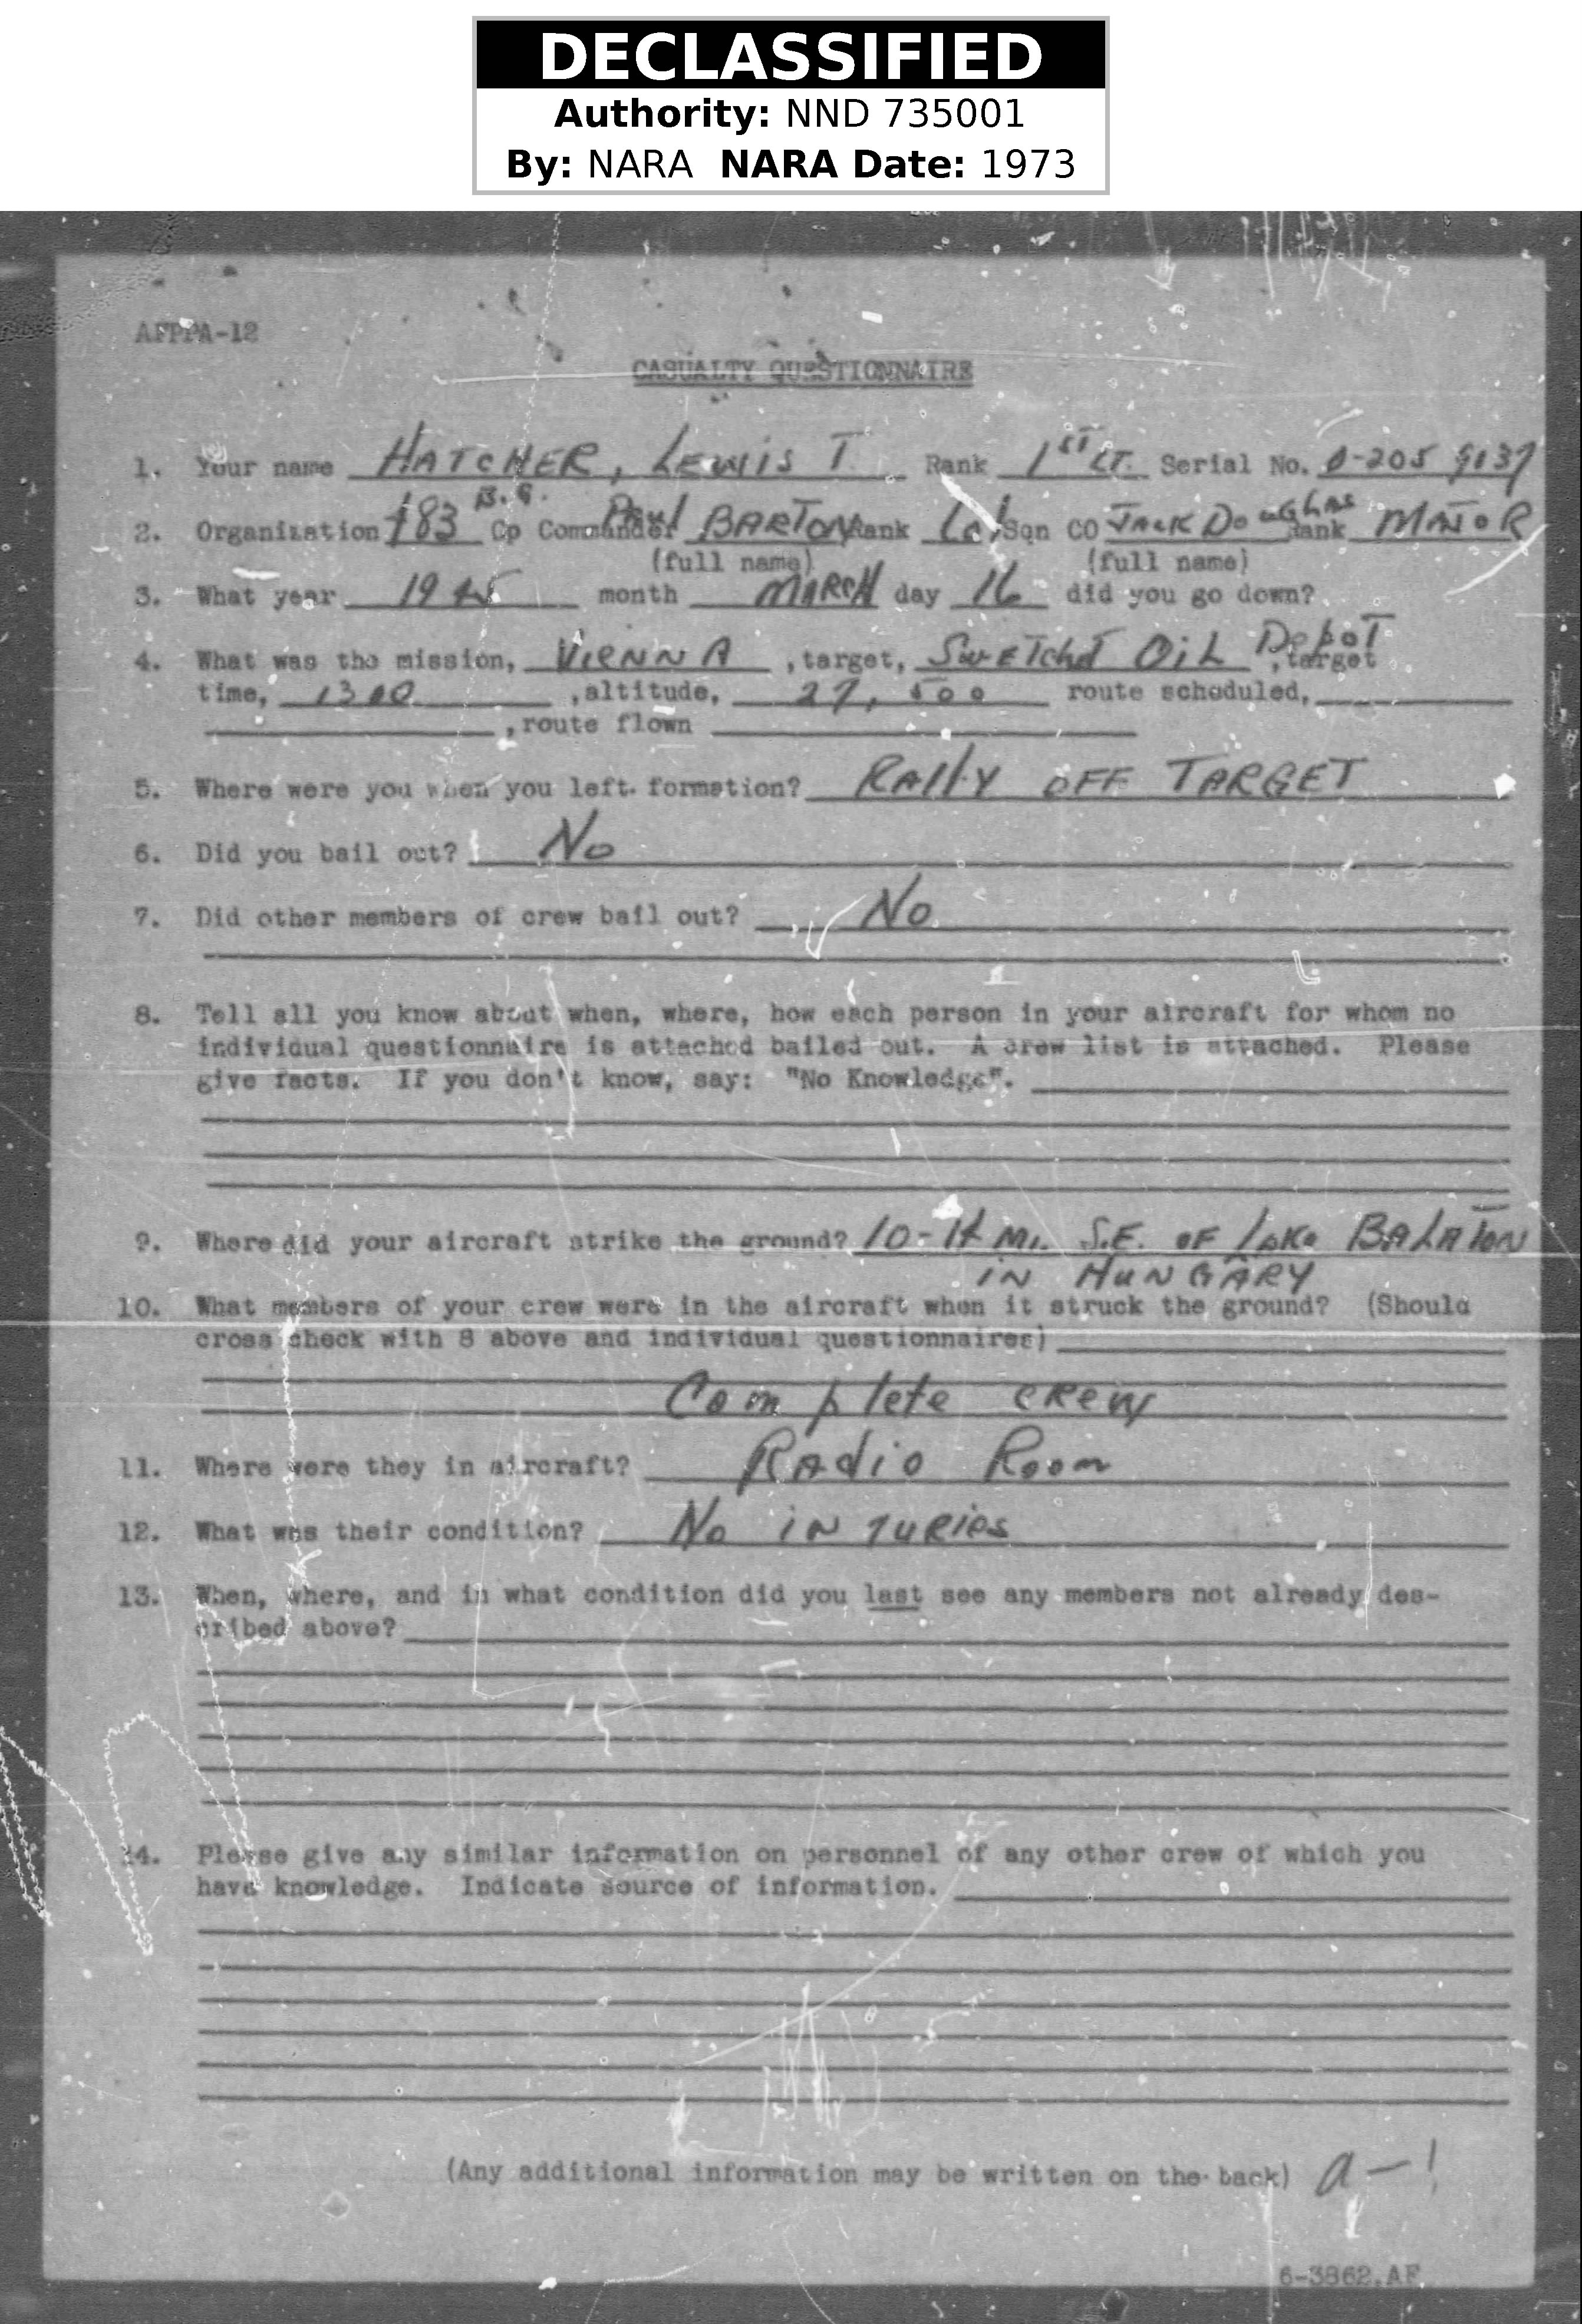 DECLASSIFIED
Authority: NND 735001
By: NARA NARA Date: 1973
AFPPA-12
CASUALTY QUESTIONNAIRE
1. Your name HATCHER, LEWIS T. Rank 1ST LT. Serial No. 0-205 9137
2. Organization 483 B.G. Gp Commander Paul BARTON Rank Col Sqn CO JACK DOUGHLAS Rank MAJOR
(full name) (full name)
3. What year 1945 month MARCH day 16 did you go down?
4. What was the mission, VIENNA , target, Oil Depot , target
time, 1300 , altitude, 27,500 route scheduled,
, route flown
5. Where were you when you left formation? RAlly OFF TARGET
6. Did you bail out? No
7. Did other members of crew bail out? No
8. Tell all you know about when, where, how each person in your aircraft for whom no
individual questionnaire is attached bailed out. A crew list is attached. Please
give facts. If you don't know, say: "No Knowledge".
9. Where did your aircraft strike the ground? Mi. S.E. OF Lake BALATON
IN HUNGARY
10. What members of your crew were in the aircraft when it struck the ground? (Should
cross check with 8 above and individual questionnaires)
Complete crew
11. Where were they in aircraft? Radio Room
12. What was their condition? No injuries
13. When, where, and in what condition did you last see any members not already des-
cribed above?
14. Please give any similar information on personnel of any other crew of which you
have knowledge. Indicate source of information.
(Any additional information may be written on the back) a-1
6-3862,AF